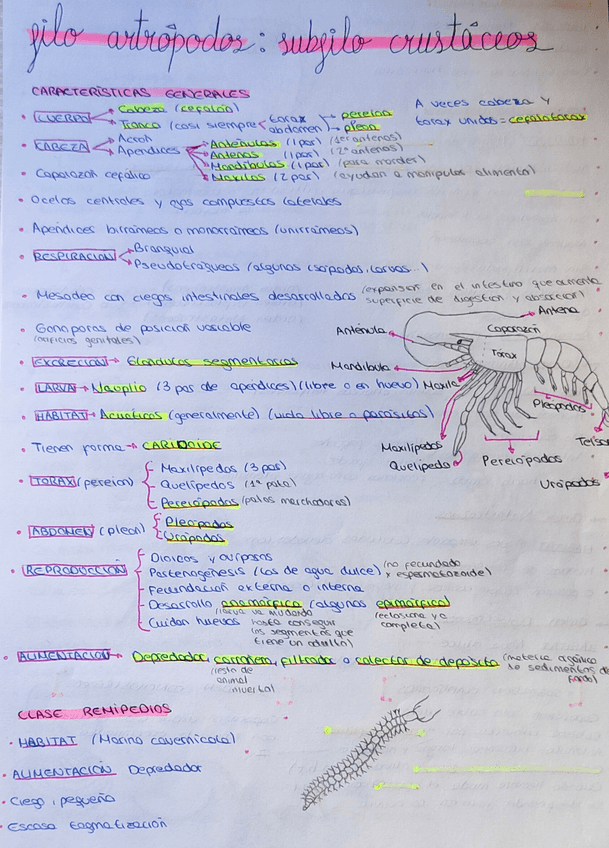 filo artrópodos: subfilo crustáceos
CARACTERÍSTICAS GENERALES
• CUERPO Cabeza (cefalón)
Tronco (casi siempre torax pereion
abdomen) pleon
A veces cabeza y
torax unidos = cefalotorax
• CABEZA Acron
Apendices Anténulas (1 par) (1ª antenas)
Antenas (1 par) (2ª antenas)
Mandíbulas (1 par) (para morder)
Maxilas (2 par) (ayudan a manipular alimento)
• Caparazón cefálico
• Ocelos centrales y ojos compuestos laterales
• Apéndices birrámeos o monorrámeos (unirrámeos)
• RESPIRACIÓN Branquial
Pseudotráqueas (algunos isópodos, larvas...)
• Mesodeo con ciegos intestinales desarrollados (expansión en el intestino que aumenta
superficie de digestión y absorción)
• Gonoporos de posición variable
(orificios genitales)
• EXCRECIÓN → Glándulas segmentarias
• LARVA → Nauplio (3 par de apéndices) (libre o en huevo)
• HÁBITAT → Acuáticos (generalmente) (vida libre o parásitos)
• Tienen forma → CARIDOIDE
• TORAX (pereion) Maxilípedos (3 par)
Quelípedos (1ª pata)
Pereiópodos (patas marchadoras)
• ABDOMEN (pleon) Pleópodos
Urópodos
• REPRODUCCIÓN Dioicos y ovíparos
Partenogénesis (los de agua dulce) (no fecundado
x espermatozoide)
Fecundación externa o interna
Desarrollo anamórfico (algunos epimórfico)
(larva va mudando
hasta conseguir
los segmentos que
tiene un adulto)
(eclosiona ya
completa)
Cuidan huevos
• ALIMENTACIÓN → Depredador, carroñero, filtrador o colector de depósito (materia orgánica
de sedimentos del
fondo)
(resto de
animal
muerto)
Antena
Anténula
Caparazón
Torax
Mandíbula
Maxila
Pleópodos
Maxilípedos
Quelípedo
Pereiópodos
Telson
Urópodos
CLASE REMIPEDIOS
• HÁBITAT (Marino cavernícola)
• ALIMENTACIÓN Depredador
• Ciego, pequeño
• Escasa tagmatización